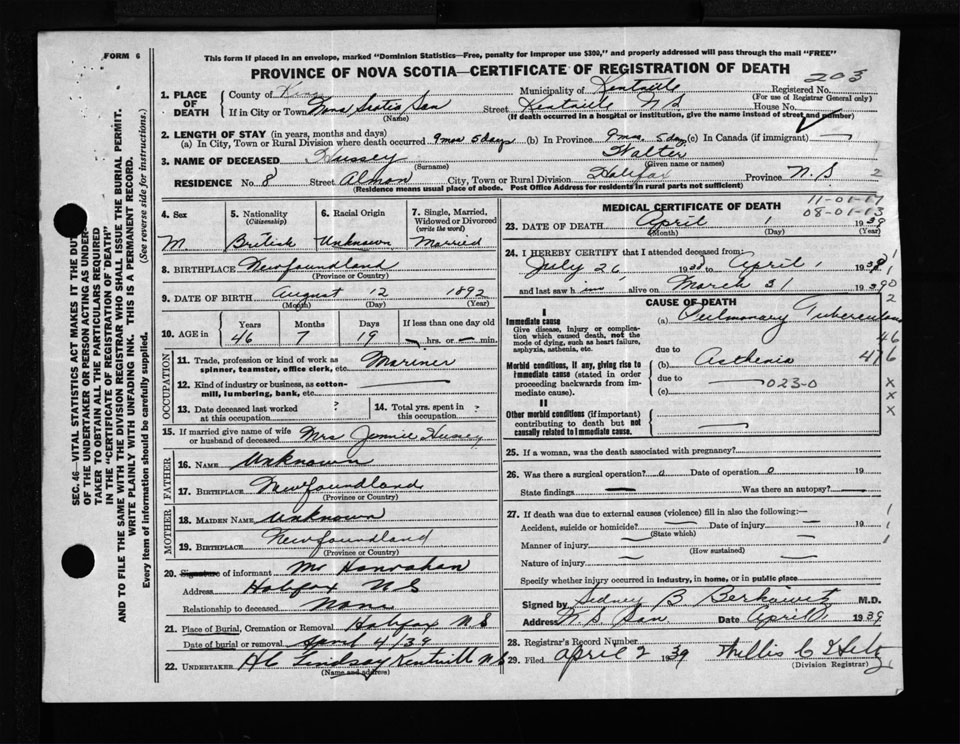 FORM 6
This form if placed in an envelope, marked "Dominion Statistics—Free, penalty for improper use $300," and properly addressed will pass through the mail "FREE"
PROVINCE OF NOVA SCOTIA—CERTIFICATE OF REGISTRATION OF DEATH
203
1. PLACE OF DEATH County of Kings Municipality of Kentville Registered No.
(For use of Registrar General only)
If in City or Town Nova Scotia San Street Kentville N S House No.
(Name) (If death occurred in a hospital or institution, give the name instead of street and number)
2. LENGTH OF STAY (in years, months and days)
(a) In City, Town or Rural Division where death occurred 9 mos 5 days (b) In Province 9 mos. 5 days (c) In Canada (if immigrant)
3. NAME OF DECEASED Hussey Walter
(Surname) (Given name or names)
RESIDENCE No. 8 Street Almon City, Town or Rural Division Halifax Province N.S 2
(Residence means usual place of abode. Post Office Address for residents in rural parts not sufficient)
4. Sex M
5. Nationality (Citizenship) British
6. Racial Origin Unknown
7. Single, Married, Widowed or Divorced (write the word) Married
8. BIRTHPLACE Newfoundland
(Province or Country)
9. DATE OF BIRTH August 12 1892
(Month) (Day) (Year)
10. AGE in Years Months Days If less than one day
46 7 19 hrs. or min.
OCCUPATION
11. Trade, profession or kind of work as spinner, teamster, office clerk, etc. Mariner
12. Kind of industry or business, as cotton-mill, lumbering, bank, etc.
13. Date deceased last worked at this occupation ?
14. Total yrs. spent in this occupation ?
15. If married give name of wife or husband of deceased Mrs Jennie Hussey
FATHER
16. NAME Unknown
17. BIRTHPLACE Newfoundland
(Province or Country)
MOTHER
18. MAIDEN NAME Unknown
19. BIRTHPLACE Newfoundland
(Province or Country)
20. Signature of informant Mr Hanrahan
Address Halifax N S
Relationship to deceased None
21. Place of Burial, Cremation or Removal Halifax N S
Date of burial or removal April 4/39
22. UNDERTAKER H C Lindsay Kentville N S
(Name and address)
MEDICAL CERTIFICATE OF DEATH
11-01-17
08-01-13
23. DATE OF DEATH April 1 1939
(Month) (Day) (Year)
24. I HEREBY CERTIFY that I attended deceased from:
July 26 1938 to April 1 1939
and last saw h im alive on March 31 1939
CAUSE OF DEATH
I
Immediate cause
Give disease, injury or complication which caused death, not the mode of dying, such as heart failure, asphyxia, asthenia, etc.
(a) Pulmonary Tuberculosis
due to
46
Morbid conditions, if any, giving rise to immediate cause (stated in order proceeding backwards from immediate cause).
(b) Asthenia
416
due to
(c) 023-0
x
x
x
II
Other morbid conditions (if important) contributing to death but not causally related to immediate cause.
25. If a woman, was the death associated with pregnancy?
26. Was there a surgical operation? o Date of operation o 19
State findings Was there an autopsy?
27. If death was due to external causes (violence) fill in also the following:—
Accident, suicide or homicide? Date of injury 19
(State which)
Manner of injury
(How sustained)
Nature of injury
Specify whether injury occurred in industry, in home, or in public place
Signed by Sidney B Berkowitz M.D.
Address N. S San Date April 1939
28. Registrar's Record Number
29. Filed April 2 1939 Phillis C
(Division Registrar)
SEC. 46—VITAL STATISTICS ACT MAKES IT THE DUTY
OF THE UNDERTAKER OR PERSON ACTING AS UNDER-
TAKER TO OBTAIN ALL THE PARTICULARS REQUIRED
IN THE "CERTIFICATE OF REGISTRATION OF DEATH"
AND TO FILE THE SAME WITH THE DIVISION REGISTRAR WHO SHALL ISSUE THE BURIAL PERMIT.
WRITE PLAINLY WITH UNFADING INK. THIS IS A PERMANENT RECORD.
Every item of information should be carefully supplied. (See reverse side for instructions.)